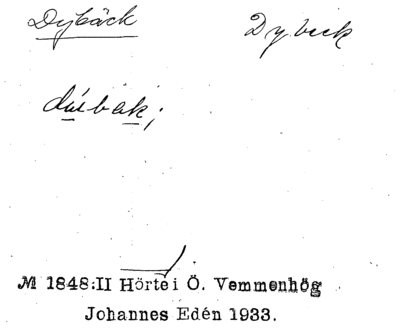 Dybäck Dybeck
dúbak;
№ 1848:II Hörte i Ö. Vemmenhög
Johannes Edén 1933.